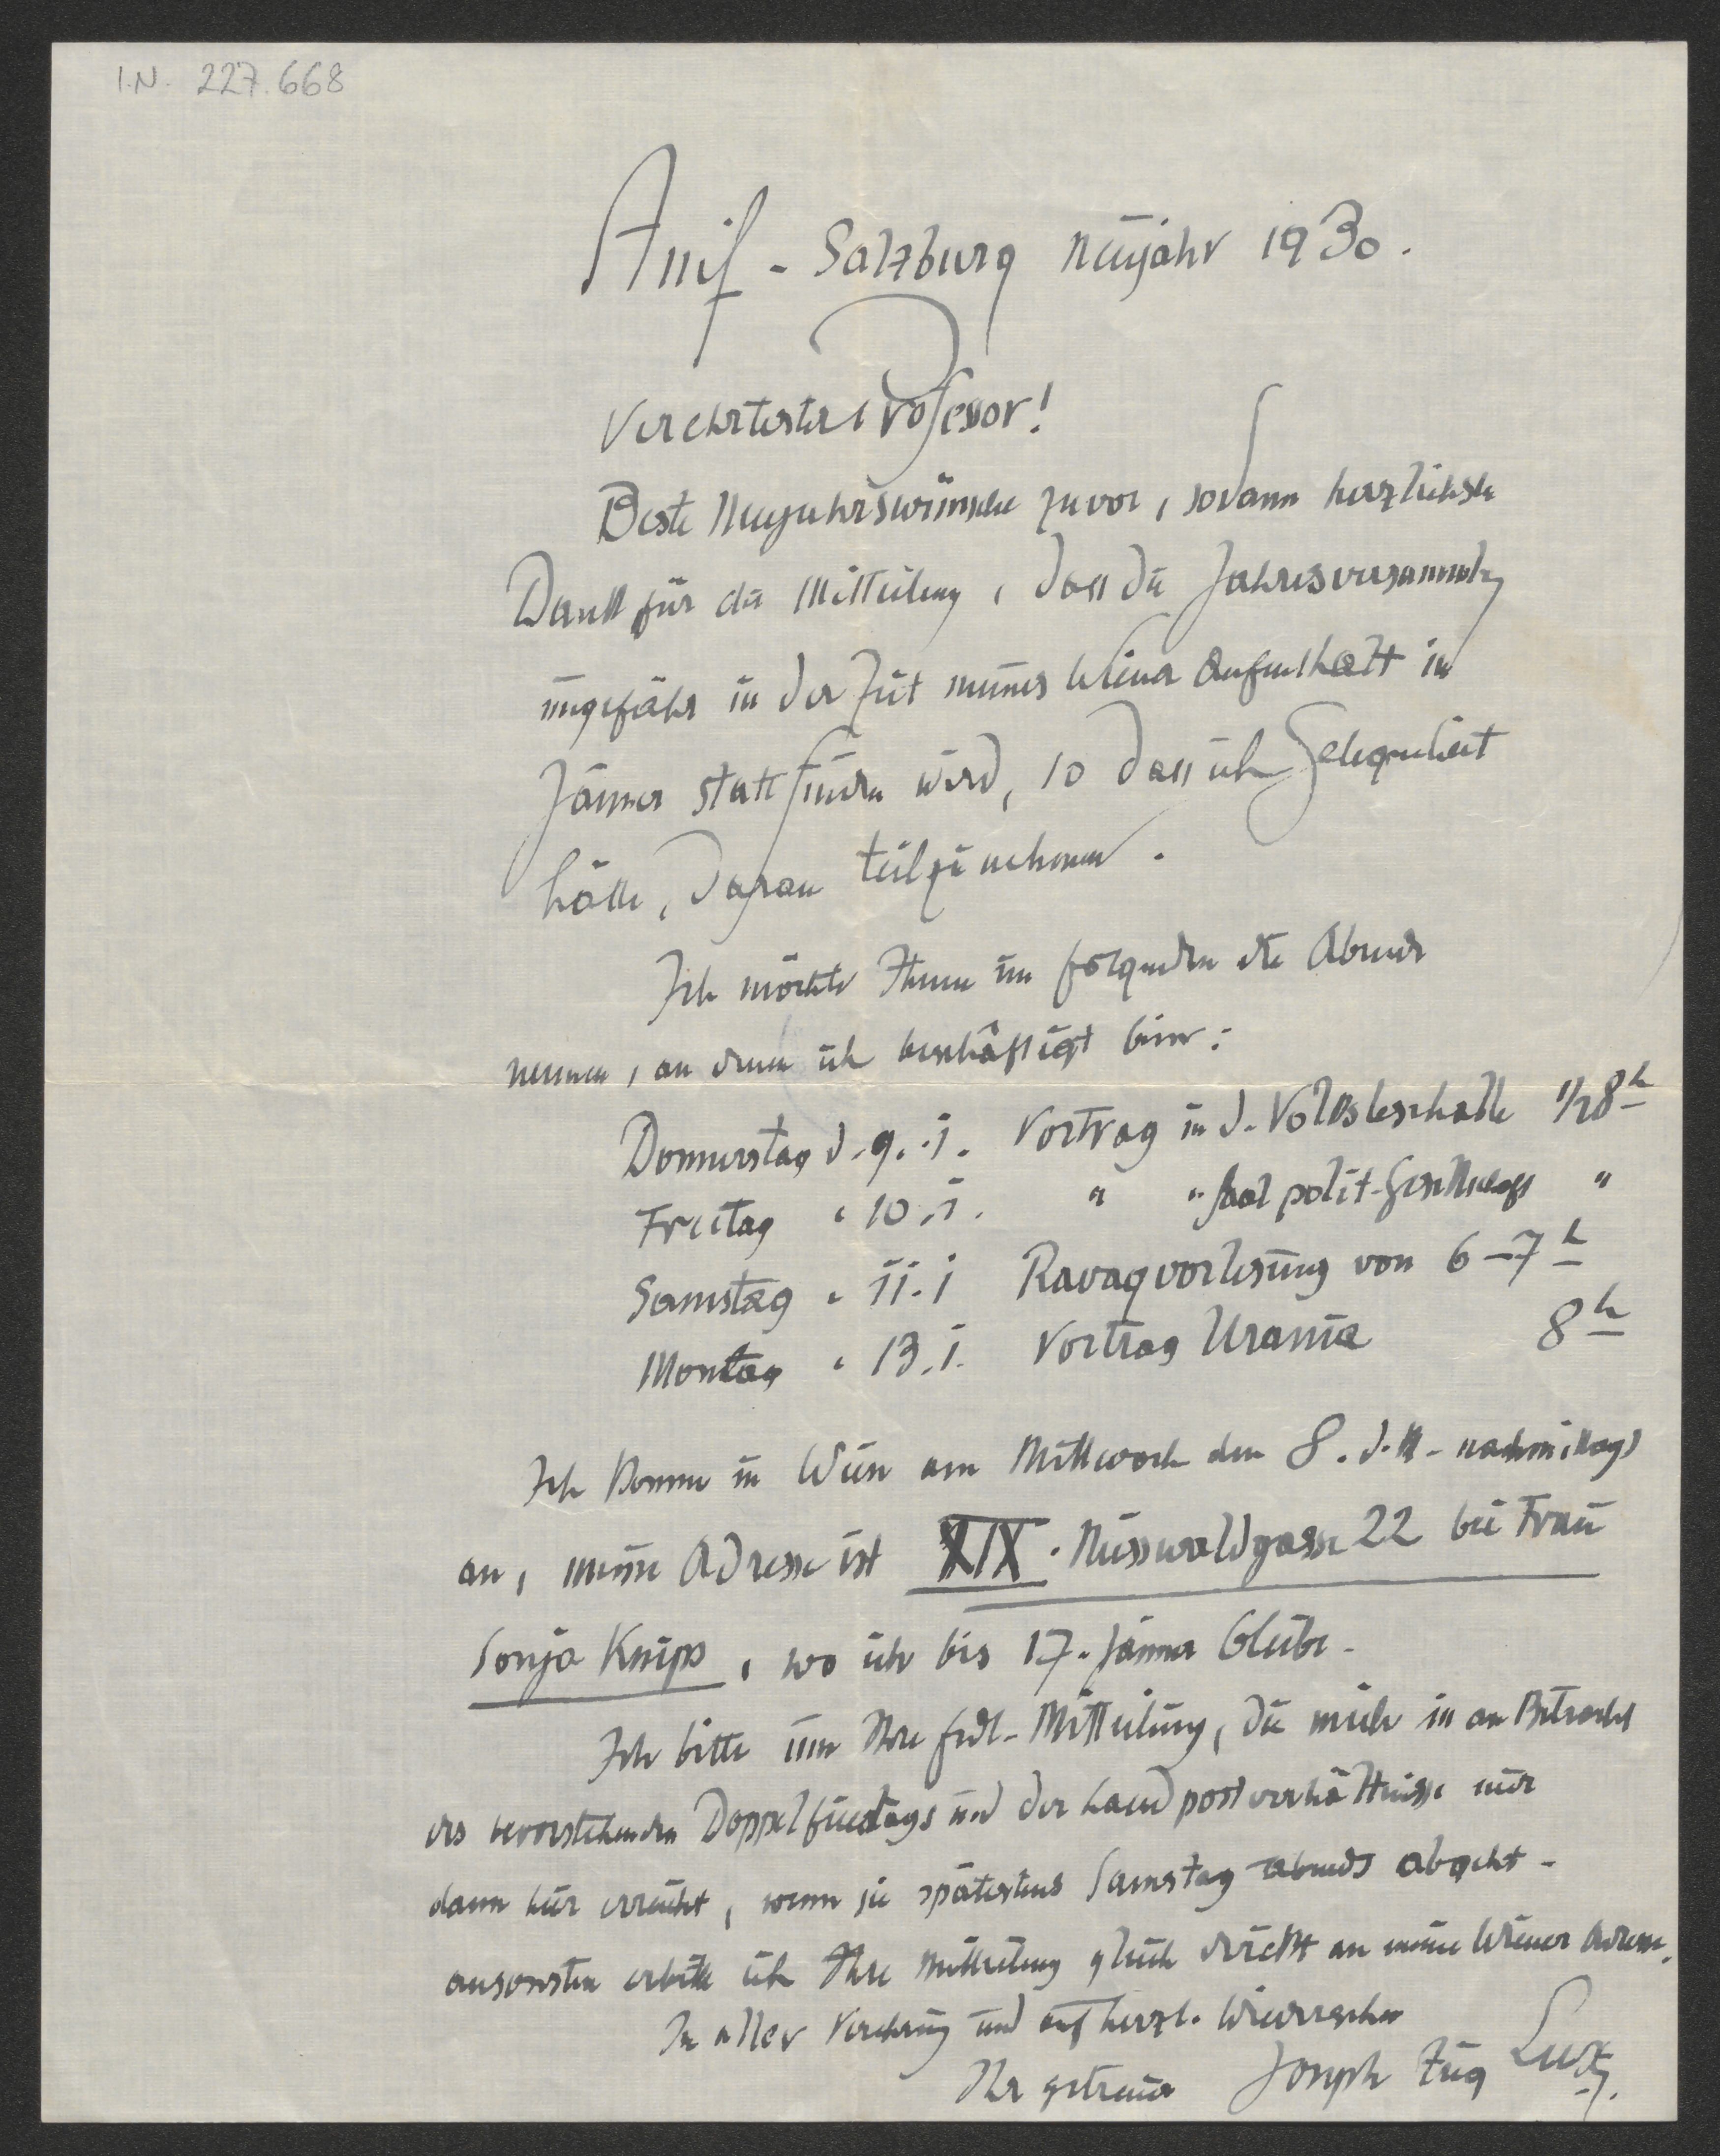 I.N. 227.668
Anif - Salzburg Neujahr 1930.
Verehrtester Professor!
Beste Neujahrswünsche zuvor, sodann herzlichste
Dank für die Mitteilung, dass die Jahresversammlung
ungefähr in der Zeit meines Wiener Aufenthalt in
Jänner stattfinden wird, so dass ich Gelegenheit
hätte, daran teilzunehmen.
Ich möchte Ihnen im folgenden die Abende
nennen, an denen ich beschäftigt bin:
Donnerstag d. 9. I. Vortrag in d. Volksleschalle 1/2 8h
Freitag " 10. I. " " Saal polit. "
Samstag " 11. I Ravagvorlesung von 6-7h
Montag " 13. I. Vortrag Urania 8h
Ich komme in Wien am Mittwoch den 8. d. M. nachmittags
an, meine Adresse ist XIX. Nusswaldgasse 22 bei Frau
Sonja Knips, wo ich bis 17. Jänner bleibe.
Ich bitte um Ihre frdl. Mitteilung, die mich in an Betracht
des bevorstehenden Doppelfeiertags und der Landpostverhältnisse nur
dann hier erreicht, wenn sie spätestens Samstag abends abgeht.
ansonsten erbitte ich Ihre Mitteilung gleich direkt an meine Wiener Adresse.
In aller Verehrung und auf herzl. Wiedersehen
Ihr getreuer Joseph Aug Lux.